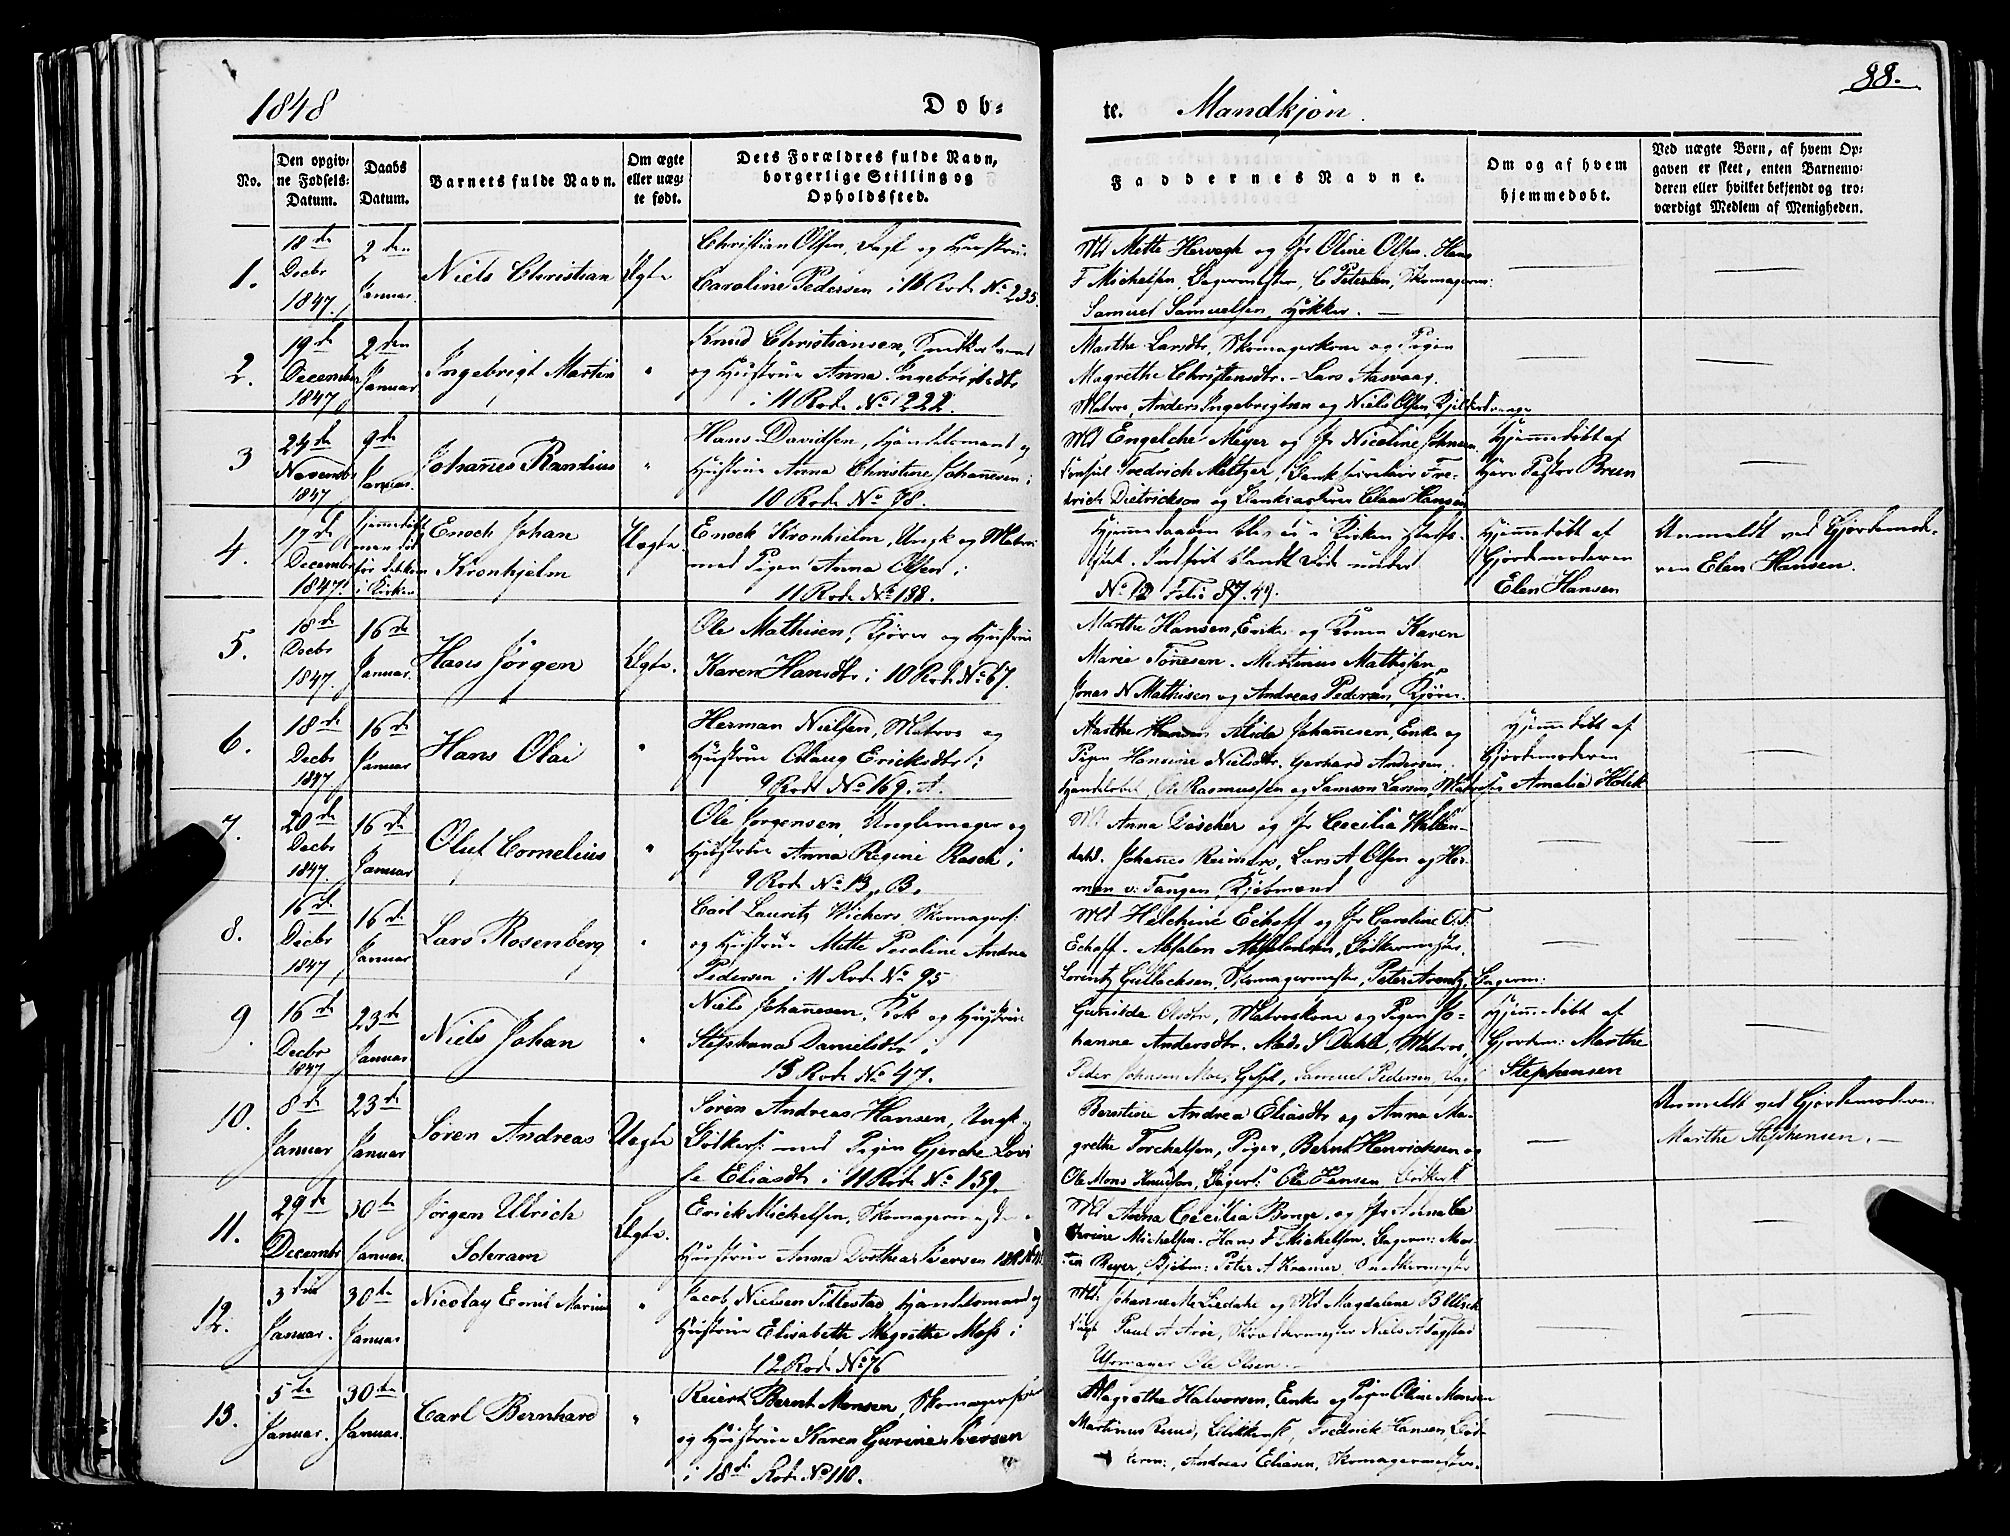 88.
1848
Dob-
te.
Mandkjøn.
No.
Den opgiv-
ne Fødsels-
Datum.
Daabs
Datum.
Barnets fulde Navn.
Om ægte
eller uæg-
te født.
Dets Forældres fulde Navn,
borgerlige Stilling og
Opholdssted.
Faddernes Navne.
Om og af hvem
hjemmedøbt.
Ved uægte Børn, af hvem Op-
gaven er skeet, enten Barnemo-
deren eller hvilket bekjendt og tro-
værdigt Medlem af Menigheden.
1.
18de
Decbr
1847.
2den
Januar.
Niels Christian
Ægte
Christian Olsen, og Hustrue
Caroline Pedersen i 16 Rode No 235.
Md Mette Hervagh og Jfr Oline Olsen. Hans
F Michelsen, Bagermester, C Petersen, Skomagerm:
Samuel Samuelsen, Høkker.
2.
19de
December
1847
2den
Januar
Ingebrigt Martin
"
Knud Christiansen,
og Hustrue Anna Ingebrigtsdtr
i 11 Rode No 222.
Marthe Larsdtr, Skomagerkone og Pigen
Magrethe Christensdtr. Lars Aasvaag,
Matros, Anders Ingebrigtsen og Niels Olsen,
3
24de
Novembr
1847
9de
Januar.
Johannes Randius
"
Hans Davidsen, Handelsmand og
Hustrue Anna Christine Johannesen i
10 Rode No 78.
Md Engelche Meyer og Jfr Nicoline Johnsen
Consul Fredrich Meltzer, Fre-
drich Dietrickson og Claus Hansen
Hjemmedøbt af
Herr Pastor Breen
4.
17de
Decembr
1847.
i Kirken
Enoch Johan
Kronhjelm
Uægte.
Enock Kronhielm, Ungk og Matros
med Pigen Anna Olsen i
11 Rode No 188.
Hjemmedaaben blev ei i Kirken stadfæ-
stet. Indført blandt Døde under
No 12 Folio 87.
Hjemmedøbt af
Gjordemoderen
Elen Hansen
Anmeldt ved Gjordemode-
ren Elen Hansen.
5.
18de
Decbr
1847.
16de
Januar.
Hans Jørgen
Ægte.
Ole Mathisen, Kjører og Hustrue
Karen Hansdtr i 10 Rode No 67.
Marthe Hansen, Enke og Konen Karen
Marie Tønesen. Martinus Mathisen,
Jonas N Mathisen og Andreas Pedersen, Kjører
6.
18de
Decbr
1847
16de
Januar
Hans Olai
"
Herman Nielsen, Matros og
Hustrue Olaug Ericksdtr i
9 Rode No 169. A.
Marthe Hansen Alida Johannesen, Enke og
Pigen Hansine Nielsdtr. Gerhard Andersen,
Ole Rasmussen og Samson Larsen, Matroser
Hjemmedøbt af
Gjordemoderen
Amalia Holck
7.
20de
Decbr
1847.
16de
Januar
Oluf Cornelius
"
Ole Jørgensen, Uhrmager og
Hustrue Anna Regine Rasch i
9 Rode No 13, B.
Md Anna Döscher og Jfr Cecilia Wallen-
dahl. Johannes Reimers, Lars A Olsen og Her-
man v: Tangen, Kjøbmænd
8.
16de
Decbr
1847
16de
Januar
Lars Rosenberg
"
Carl Lauritz Wichers Skomagers:
og Hustrue Mette Peroline Andrea
Pedersen i 11 Rode No 95
Md Helchine Echoff og Jfr Caroline O.F.
Echoff. Absalon Absalonsen, Bødkermester,
Lorentz Gullachsen, Skomagermester, Peter Arentz, Bagerm:
9
16de
Decbr
1847
23de
Januar
Niels Johan
"
Niels Johannesen, Kok og Hustrue
Stephana Danielsdtr i
13 Rode No 47.
Gunilde Olsdtr, Matroskone og Pigen Jo-
hanne Andersdtr. Mads S Dahle, Matros,
Peder Johnsen Moe, Samuel Pedersen,
Hjemmedøbt af
Gjordem: Marthe
Stephensen
10.
8de
Januar
23de
Januar
Søren Andreas
Uægte
Søren Andreas Hansen, Ungk.
Bødkers: med Pigen Gjerche Lovi
se Eliasdtr i 11 Rode No 159.
Berntine Andrea Eliasdtr og Anna Ma-
grethe Torchelsen, Piger, Bernt Henricksen og
Ole Mons Knudsen, Bagers: Ole Hansen,
Anmeldt ved Gjordemoderen
Marthe Stephensen.
11.
29de
Decembr
30te
Januar.
Jørgen Ulrich
Schram
Ægte.
Erick Michelsen, Skomagermester og
Hustrue Anna Dorthea Iversen
Md Anna Cecilia Bonge, og Jfr Anna Ca
thrine Michelsen. Hans F Michelsen, Bagerm: Mor-
ten Beyer, Kjøbm: Peter A Kramer, Snedkermester
12.
3die
Januar.
30te
Januar
Nicolay Emil Marius
"
Jacob Nielsen Tillestad, Handelsmand og
Hustrue Elisabethe Magrethe Moss i
12 Rode No 76
Md. Johanne M. Liedahl og Md Magdalene B Ulrich
Paul A Aröe, Niels A Fagstad
Uhrmager Ole Olsen.
13.
5te
Januar.
30te
Januar.
Carl Bernhard
"
Reiert Bernt Monsen, Skomagers:
og Hustrue Karen Gurine Iversen
i 18de Rode No 110.
Magrethe Halvorsen, Enke og Pigen Oline Monsen
Martinus Ruus, Fredrick Hansen, Bød-
kerm:, Andreas Eliasen, Skomagermester.